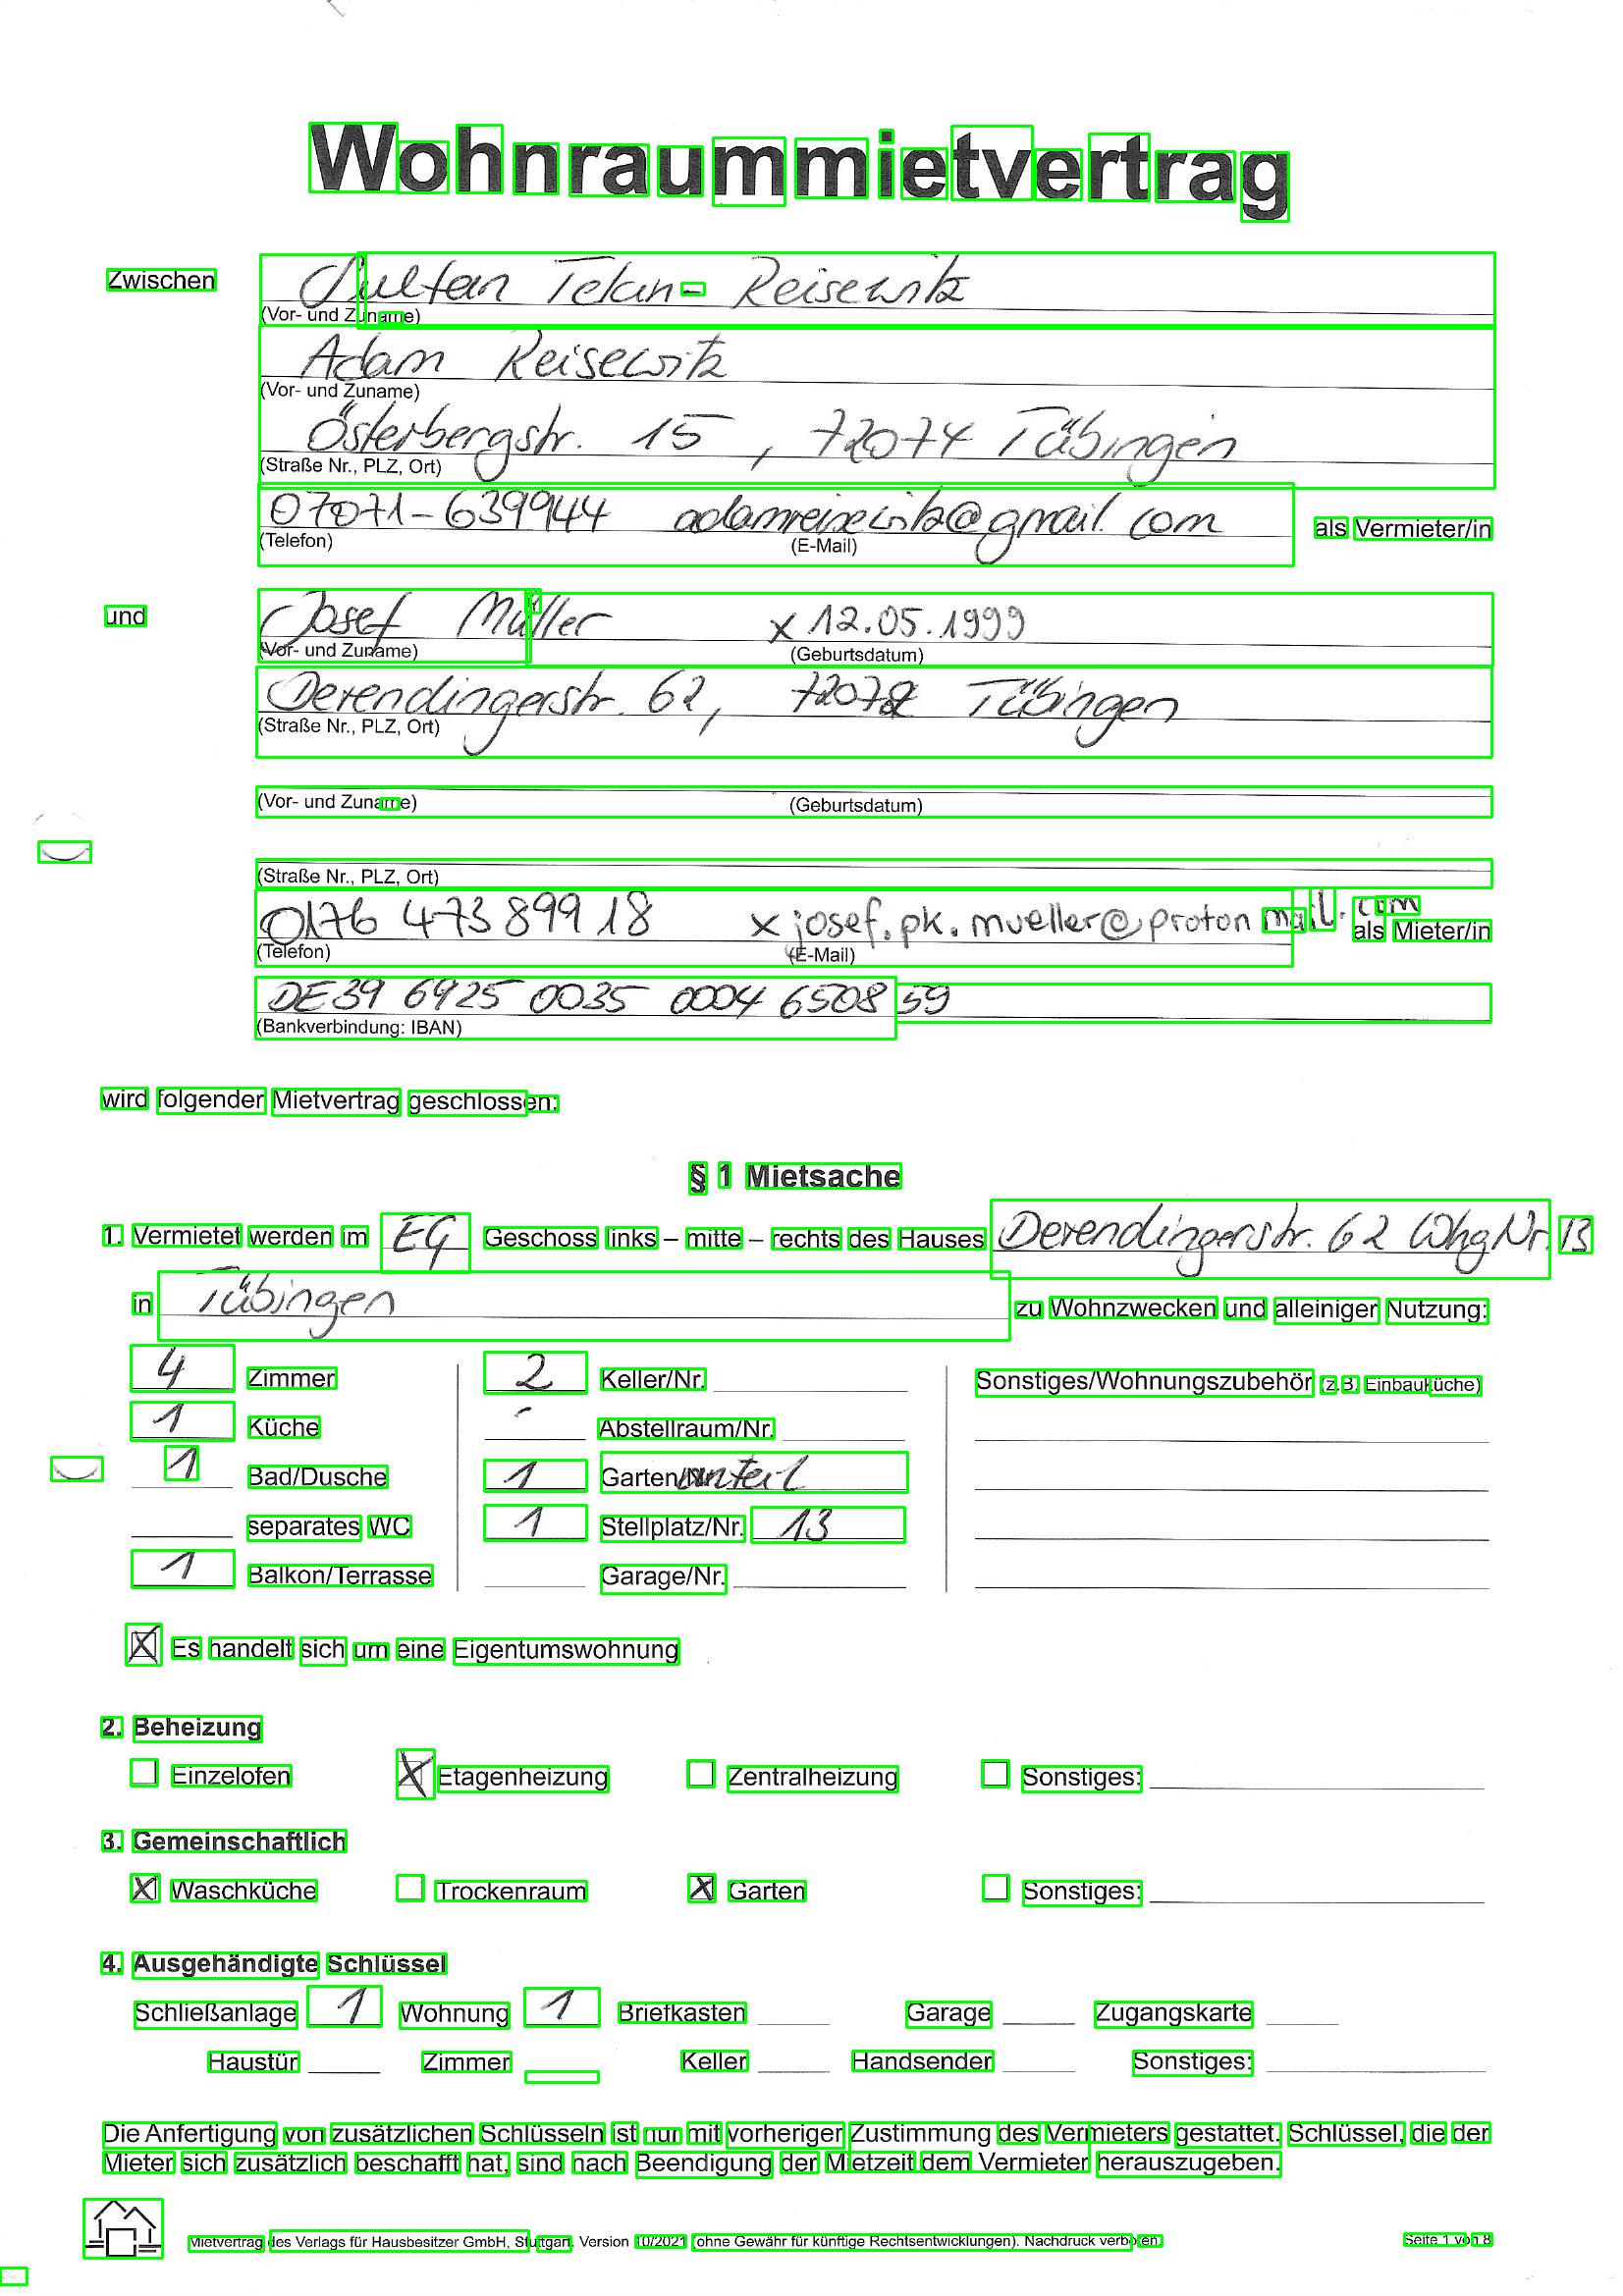 Wohnraummietvertrag
Zwischen Sultan Tekin - Reisewitz
(Vor- und Zuname)
Adam Reisewitz
(Vor- und Zuname)
Österbergstr. 15, 72074 Tübingen
(Straße Nr., PLZ, Ort)
07071-639944 adamreisewitz@gmail.com als Vermieter/in
(Telefon) (E-Mail)
und Josef Müller x 12.05.1999
(Vor- und Zuname) (Geburtsdatum)
Derendingerstr. 62, 72072 Tübingen
(Straße Nr., PLZ, Ort)
(Vor- und Zuname) (Geburtsdatum)
(Straße Nr., PLZ, Ort)
0176 473 899 18 x josef.pk.mueller@protonmail.com als Mieter/in
(Telefon) (E-Mail)
DE39 6925 0035 0004 6508 59
(Bankverbindung: IBAN)
wird folgender Mietvertrag geschlossen:
§ 1 Mietsache
1. Vermietet werden im EG Geschoss links – mitte – rechts des Hauses Derendingerstr. 62 Whg Nr. 13
in Tübingen zu Wohnzwecken und alleiniger Nutzung:
4 Zimmer 2 Keller/Nr. Sonstiges/Wohnungszubehör (z.B. Einbauküche)
1 Küche - Abstellraum/Nr.
1 Bad/Dusche 1 Garten/Nr. anteil
separates WC 1 Stellplatz/Nr. 13
1 Balkon/Terrasse Garage/Nr.
X Es handelt sich um eine Eigentumswohnung
2. Beheizung
Einzelofen X Etagenheizung Zentralheizung Sonstiges:
3. Gemeinschaftlich
X Waschküche Trockenraum X Garten Sonstiges:
4. Ausgehändigte Schlüssel
Schließanlage 1 Wohnung 1 Briefkasten Garage Zugangskarte
Haustür Zimmer Keller Handsender Sonstiges:
Die Anfertigung von zusätzlichen Schlüsseln ist nur mit vorheriger Zustimmung des Vermieters gestattet. Schlüssel, die der
Mieter sich zusätzlich beschafft hat, sind nach Beendigung der Mietzeit dem Vermieter herauszugeben.
Mietvertrag des Verlags für Hausbesitzer GmbH, Stuttgart. Version 10/2021 (ohne Gewähr für künftige Rechtsentwicklungen). Nachdruck verboten. Seite 1 von 8